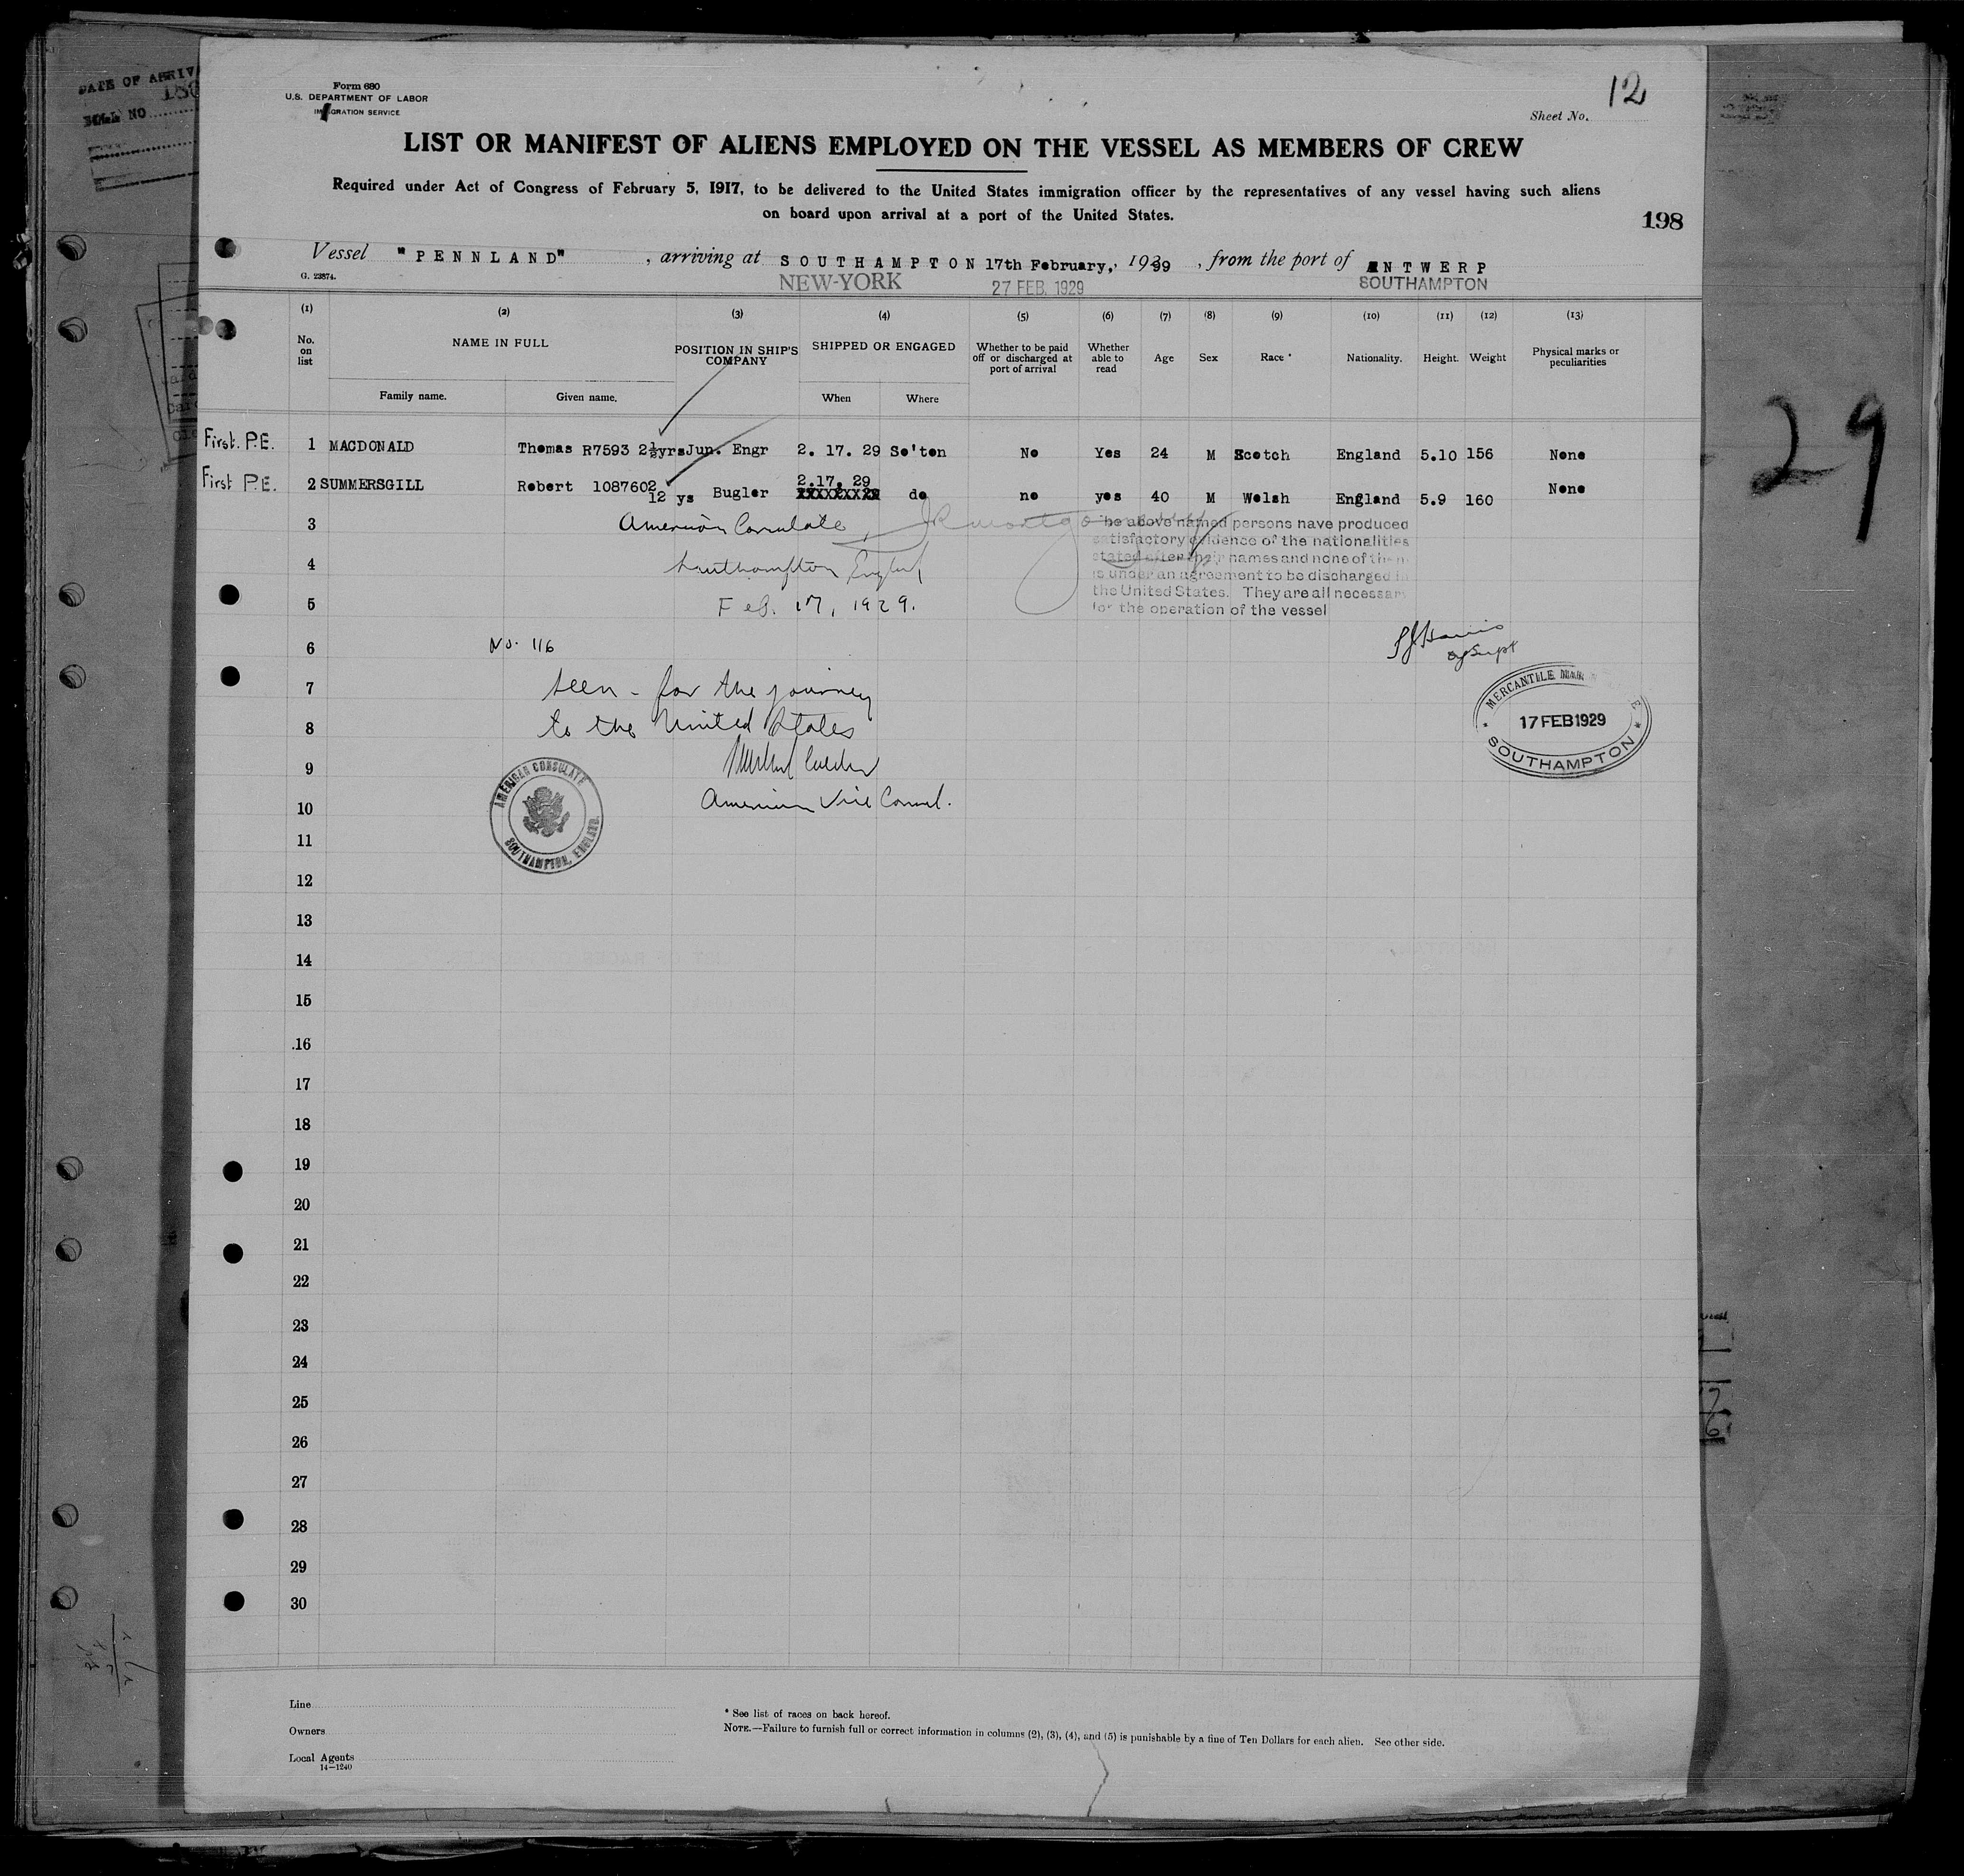 DATE OF ARRIV
Form 680
U.S. DEPARTMENT OF LABOR
IMMIGRATION SERVICE
12
Sheet No.
LIST OR MANIFEST OF ALIENS EMPLOYED ON THE VESSEL AS MEMBERS OF CREW
Required under Act of Congress of February 5, 1917, to be delivered to the United States immigration officer by the representatives of any vessel having such aliens
on board upon arrival at a port of the United States.
198
Vessel "PENNLAND", arriving at SOUTHAMPTON 17th February, 1929, from the port of ANTWERP
G. 23874.
NEW-YORK 27 FEB. 1929 SOUTHAMPTON
(1) (2) (3) (4) (5) (6) (7) (8) (9) (10) (11) (12) (13)
No. on list NAME IN FULL POSITION IN SHIP'S COMPANY SHIPPED OR ENGAGED Whether to be paid off or discharged at port of arrival Whether able to read Age Sex Race * Nationality. Height. Weight Physical marks or peculiarities
Family name. Given name. When Where
First. P.E. 1 MACDONALD Thomas R7593 2½yrs Jun. Engr 2. 17. 29 So'ton No Yes 24 M Scotch England 5.10 156 None
First P.E. 2 SUMMERSGILL Robert 1087602 12 ys Bugler 2.17. 29 do no yes 40 M Welsh England 5.9 160 None
3 American Consulate,
he above named persons have produced
satisfactory evidence of the nationalities
stated after their names and none of them
is under an agreement to be discharged in
the United States. They are all necessary
for the operation of the vessel
4 Southampton England
5 Feb. 17, 1929.
6 No. 116
7 Seen - for the journey
8 to the United States
9
10 American Vice Consul.
AMERICAN CONSULATE
SOUTHAMPTON, ENGLAND.
MERCANTILE MAR
17 FEB 1929
SOUTHAMPTON
29
11
12
13
14
15
16
17
18
19
20
21
22
23
24
25
26
27
28
29
30
Line
Owners
Local Agents
14—1240
* See list of races on back hereof.
NOTE.—Failure to furnish full or correct information in columns (2), (3), (4), and (5) is punishable by a fine of Ten Dollars for each alien. See other side.